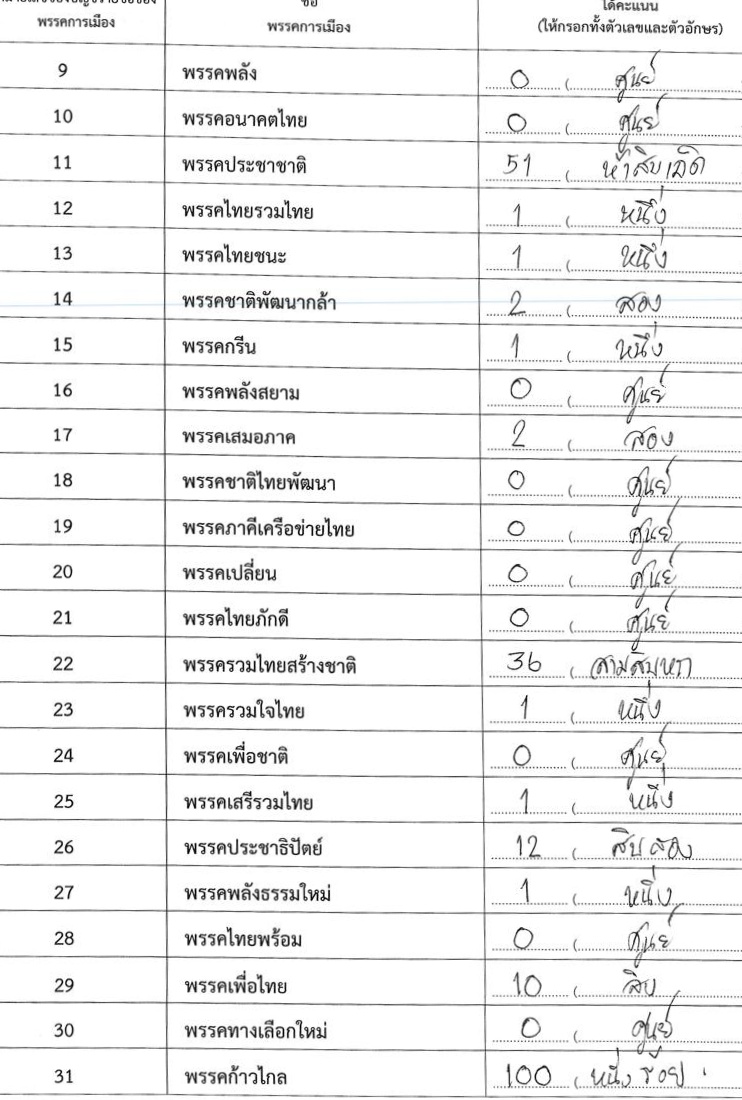 พรรคการเมือง พรรคการเมือง (ให้กรอกทั้งตัวเลขและตัวอักษร)
ได้คะแนน
9 พรรคพลัง 0 ( ศูนย์
10 พรรคอนาคตไทย 0 ( ศูนย์
11 พรรคประชาชาติ 51 ( ห้าสิบเอ็ด
12 พรรคไทยรวมไทย 1 ( หนึ่ง
13 พรรคไทยชนะ 1 ( หนึ่ง
14 พรรคชาติพัฒนากล้า 2 ( สอง
15 พรรคกรีน 1 ( หนึ่ง
16 พรรคพลังสยาม 0 ( ศูนย์
17 พรรคเสมอภาค 2 ( สอง
18 พรรคชาติไทยพัฒนา 0 ( ศูนย์
19 พรรคภาคีเครือข่ายไทย 0 ( ศูนย์
20 พรรคเปลี่ยน 0 ( ศูนย์
21 พรรคไทยภักดี 0 ( ศูนย์
22 พรรครวมไทยสร้างชาติ 36 ( สามสิบหก
23 พรรครวมใจไทย 1 ( หนึ่ง
24 พรรคเพื่อชาติ 0 ( ศูนย์
25 พรรคเสรีรวมไทย 1 ( หนึ่ง
26 พรรคประชาธิปัตย์ 12 ( สิบสอง
27 พรรคพลังธรรมใหม่ 1 ( หนึ่ง
28 พรรคไทยพร้อม 0 ( ศูนย์
29 พรรคเพื่อไทย 10 ( สิบ
30 พรรคทางเลือกใหม่ 0 ( ศูนย์
31 พรรคก้าวไกล 100 ( หนึ่งร้อย